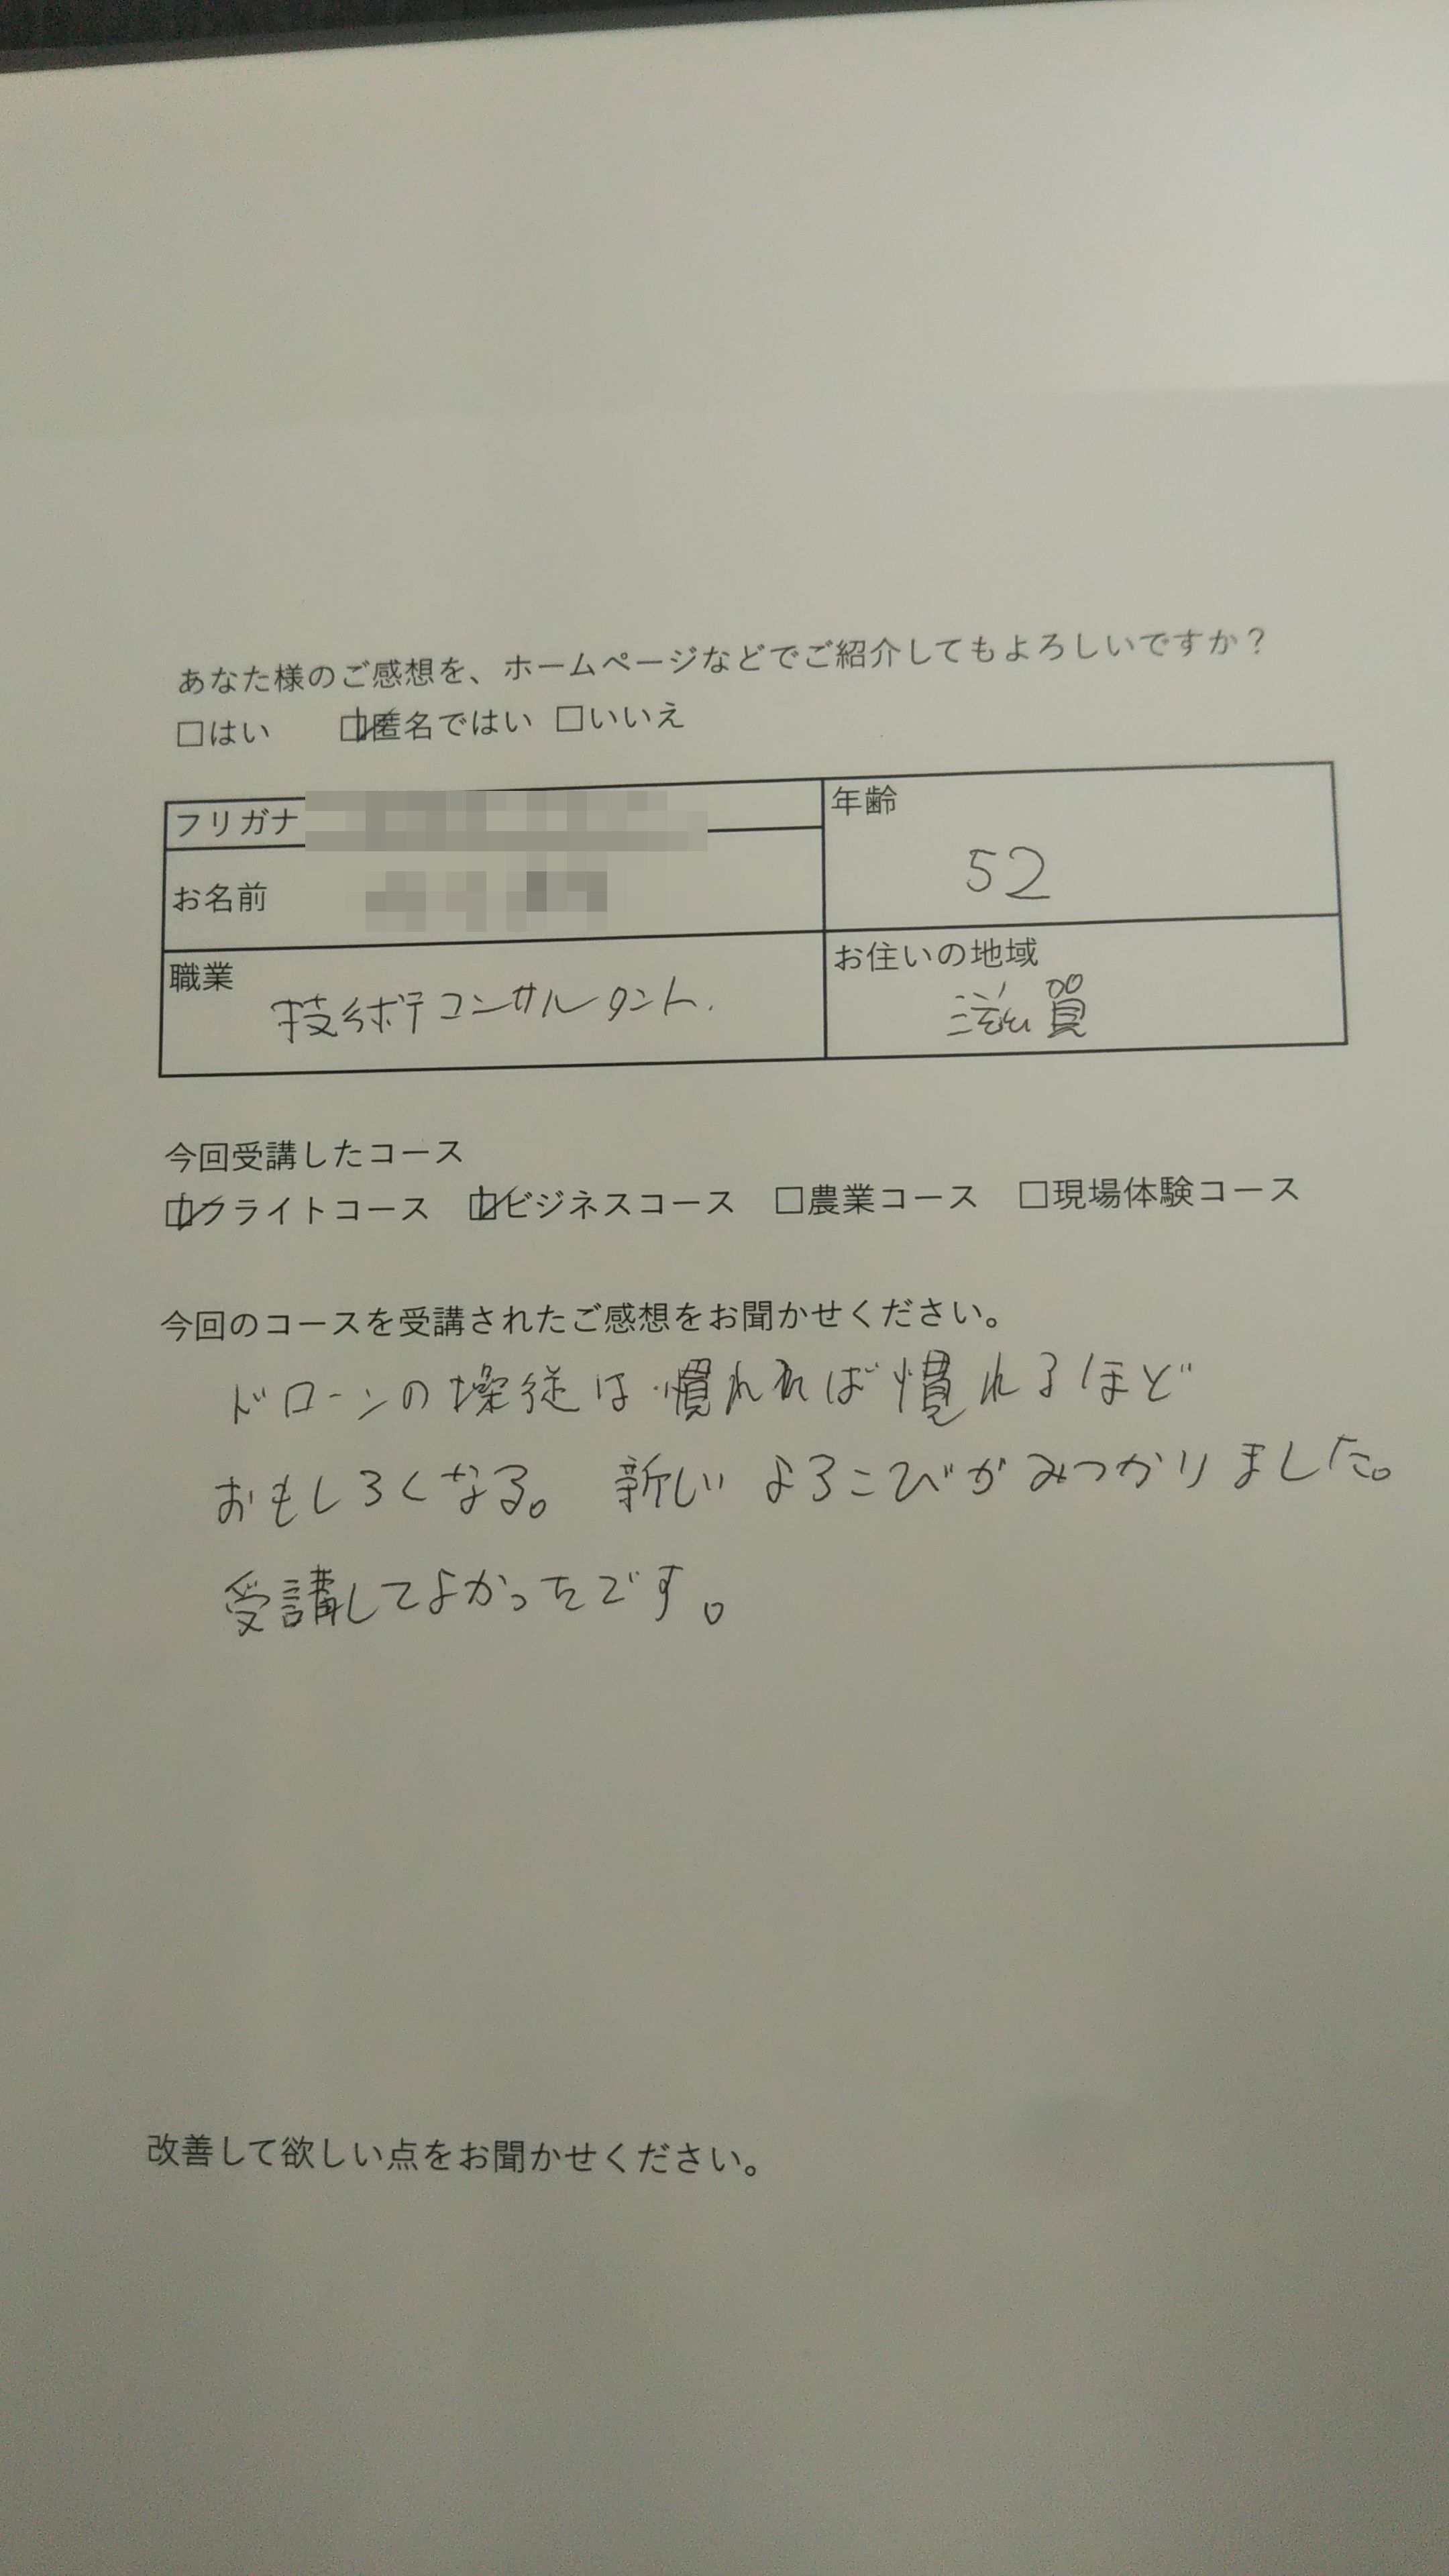 あなた様のご感想を、ホームページなどでご紹介してもよろしいですか？
□はい ☑匿名ではい □いいえ
フリガナ
お名前
年齢
52
職業
技術コンサルタント.
お住いの地域
滋賀
今回受講したコース
☑フライトコース ☑ビジネスコース □農業コース □現場体験コース
今回のコースを受講されたご感想をお聞かせください。
ドローンの操従は慣れれば慣れるほど
おもしろくなる。 新しいよろこびがみつかりました。
受講してよかったです。
改善して欲しい点をお聞かせください。